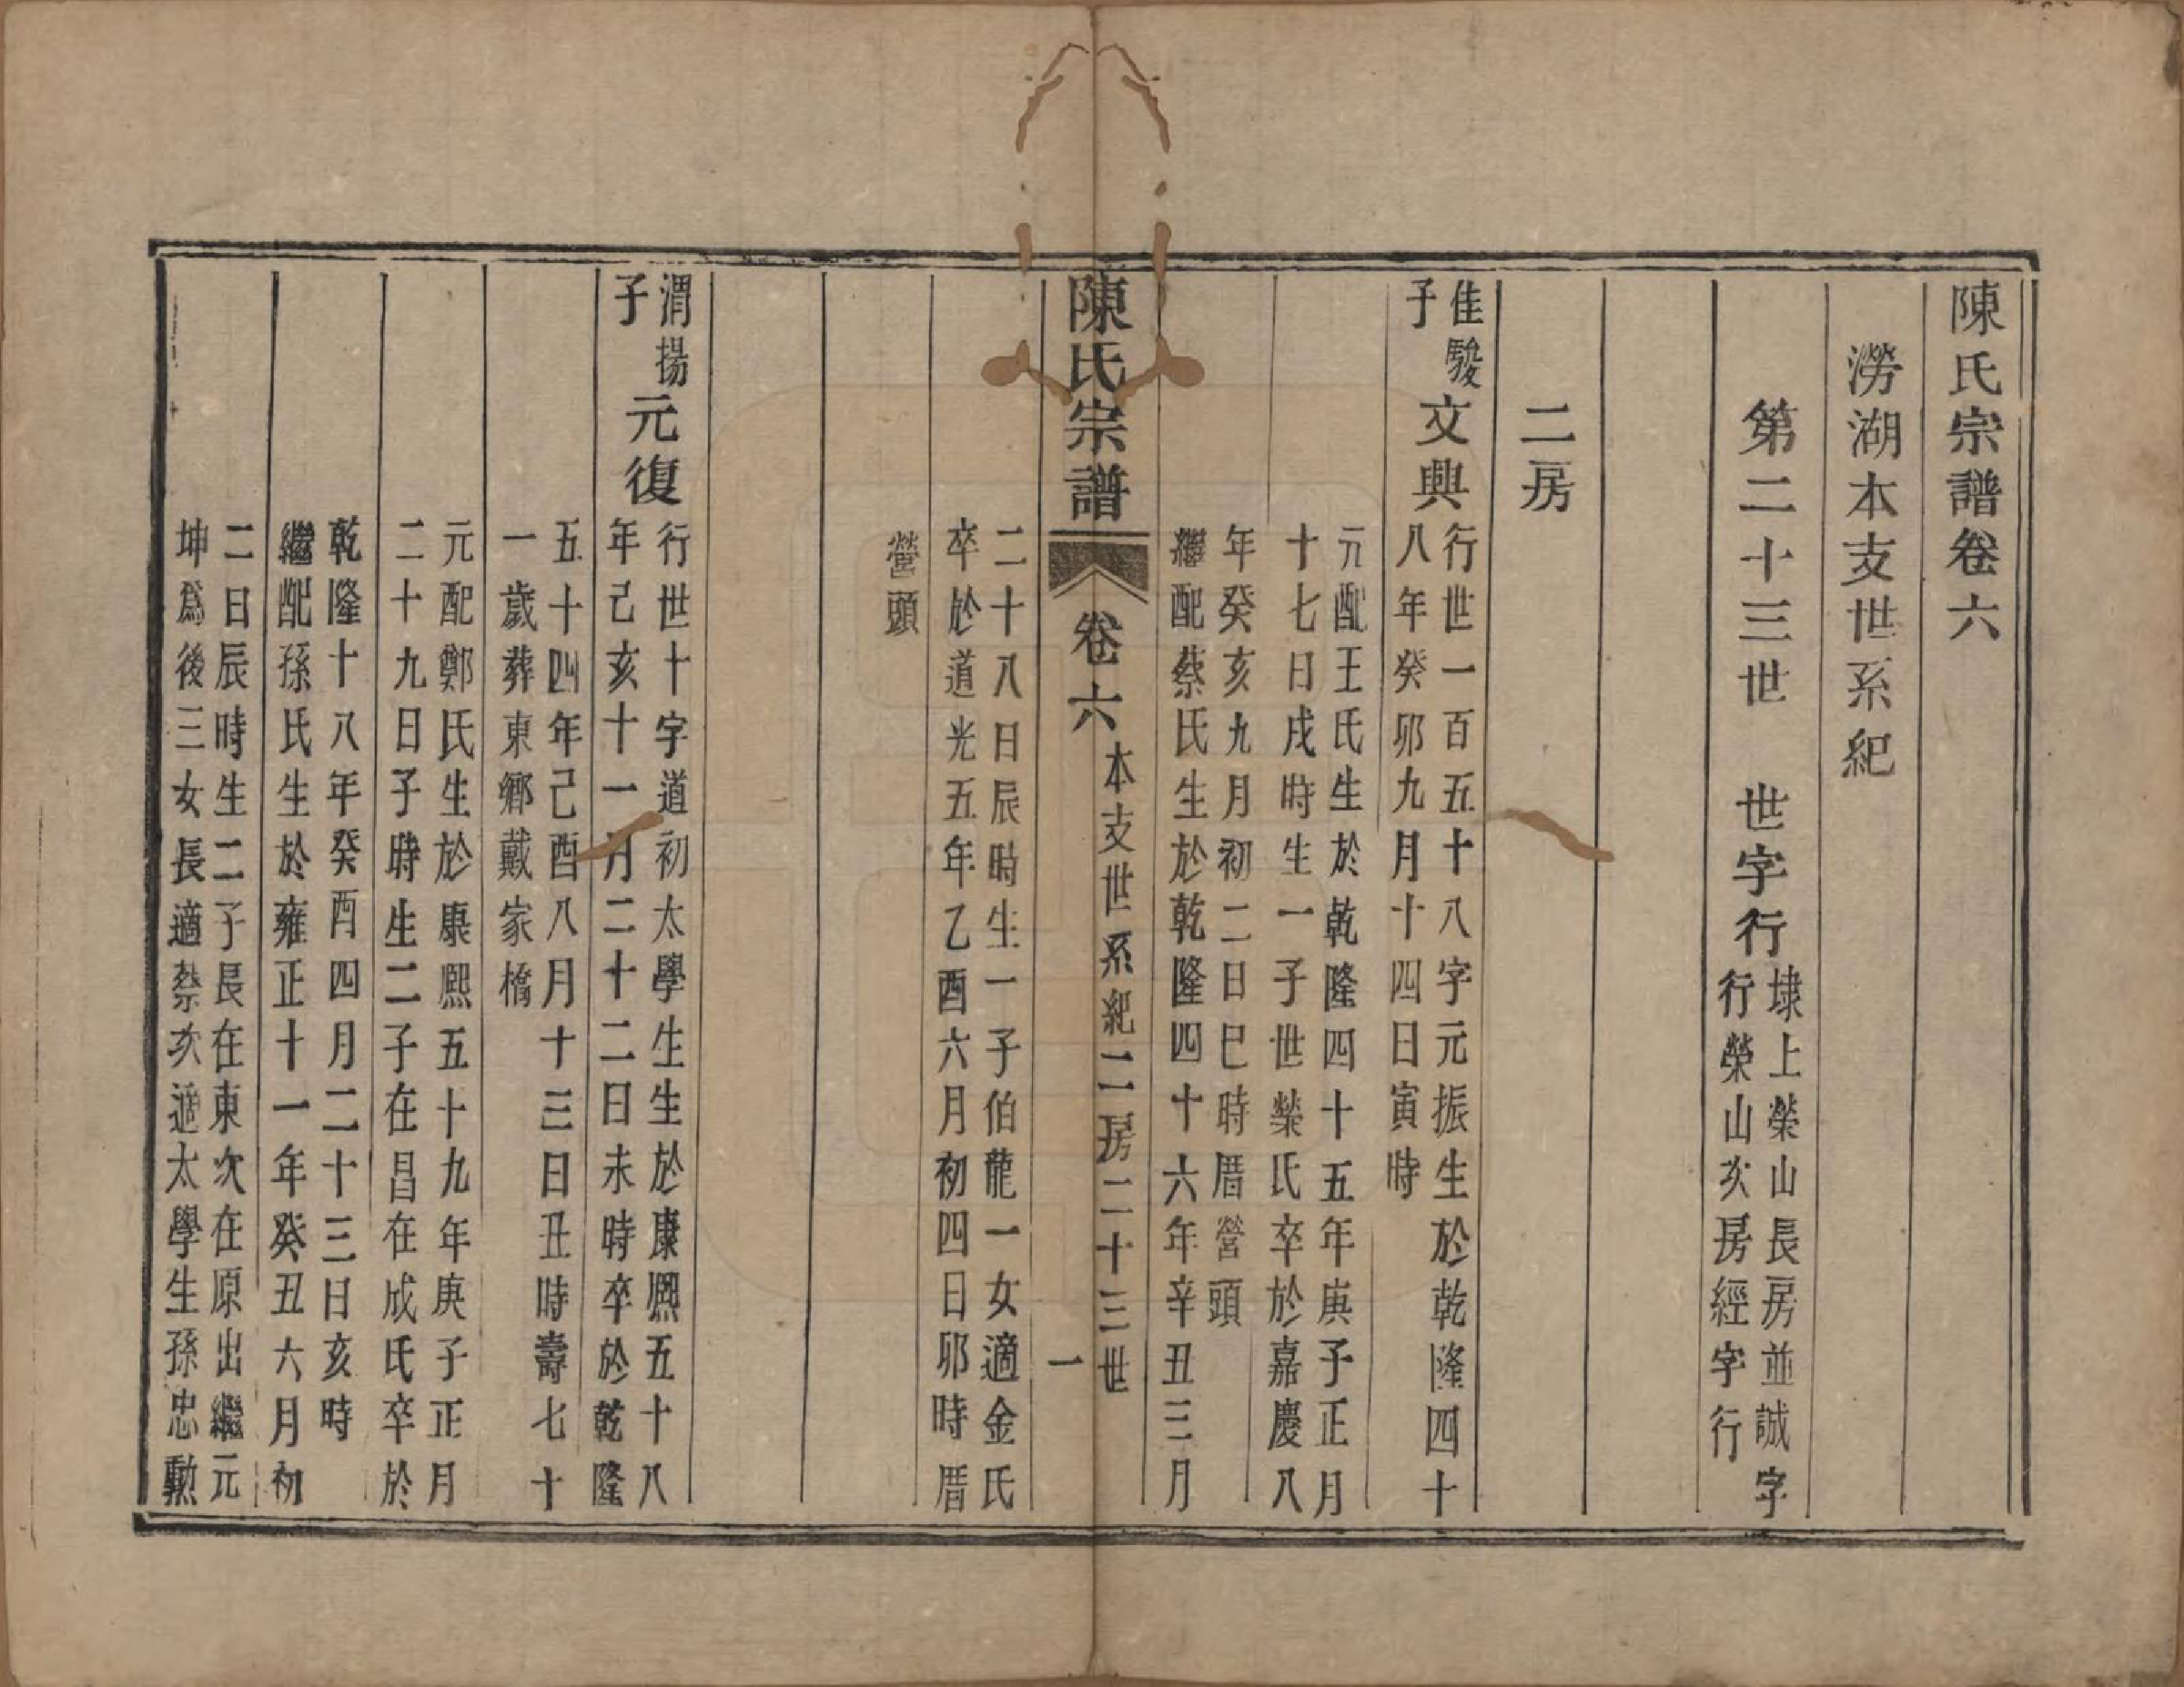 陳氏宗譜卷六
澇湖本支世系紀
第二十三世　世字行
埭上榮山長房並誠字
行榮山次房經字行
二房
佳駿
子
文興
行世一百五十八字元振生於乾隆四十
八年癸卯九月十四日寅時
元配王氏生於乾隆四十五年庚子正月
十七日戌時生一子世榮氏卒於嘉慶八
年癸亥九月初二日巳時厝營頭
繼配蔡氏生於乾隆四十六年辛丑三月
陳氏宗譜
卷六
本支世系紀二房二十三世
一
二十八日辰時生一子伯龍一女適金氏
卒於道光五年乙酉六月初四日卯時厝
營頭
渭揚
子
元復
行世十字道初太學生生於康熙五十八
年己亥十一月二十二日未時卒於乾隆
五十四年己酉八月十三日丑時壽七十
一歲葬東鄉戴家橋
元配鄭氏生於康熙五十九年庚子正月
二十九日子時生二子在昌在成氏卒於
乾隆十八年癸酉四月二十三日亥時
繼配孫氏生於雍正十一年癸丑六月初
二日辰時生二子長在東次在原出繼元
坤爲後三女長適蔡次適太學生孫忠勳